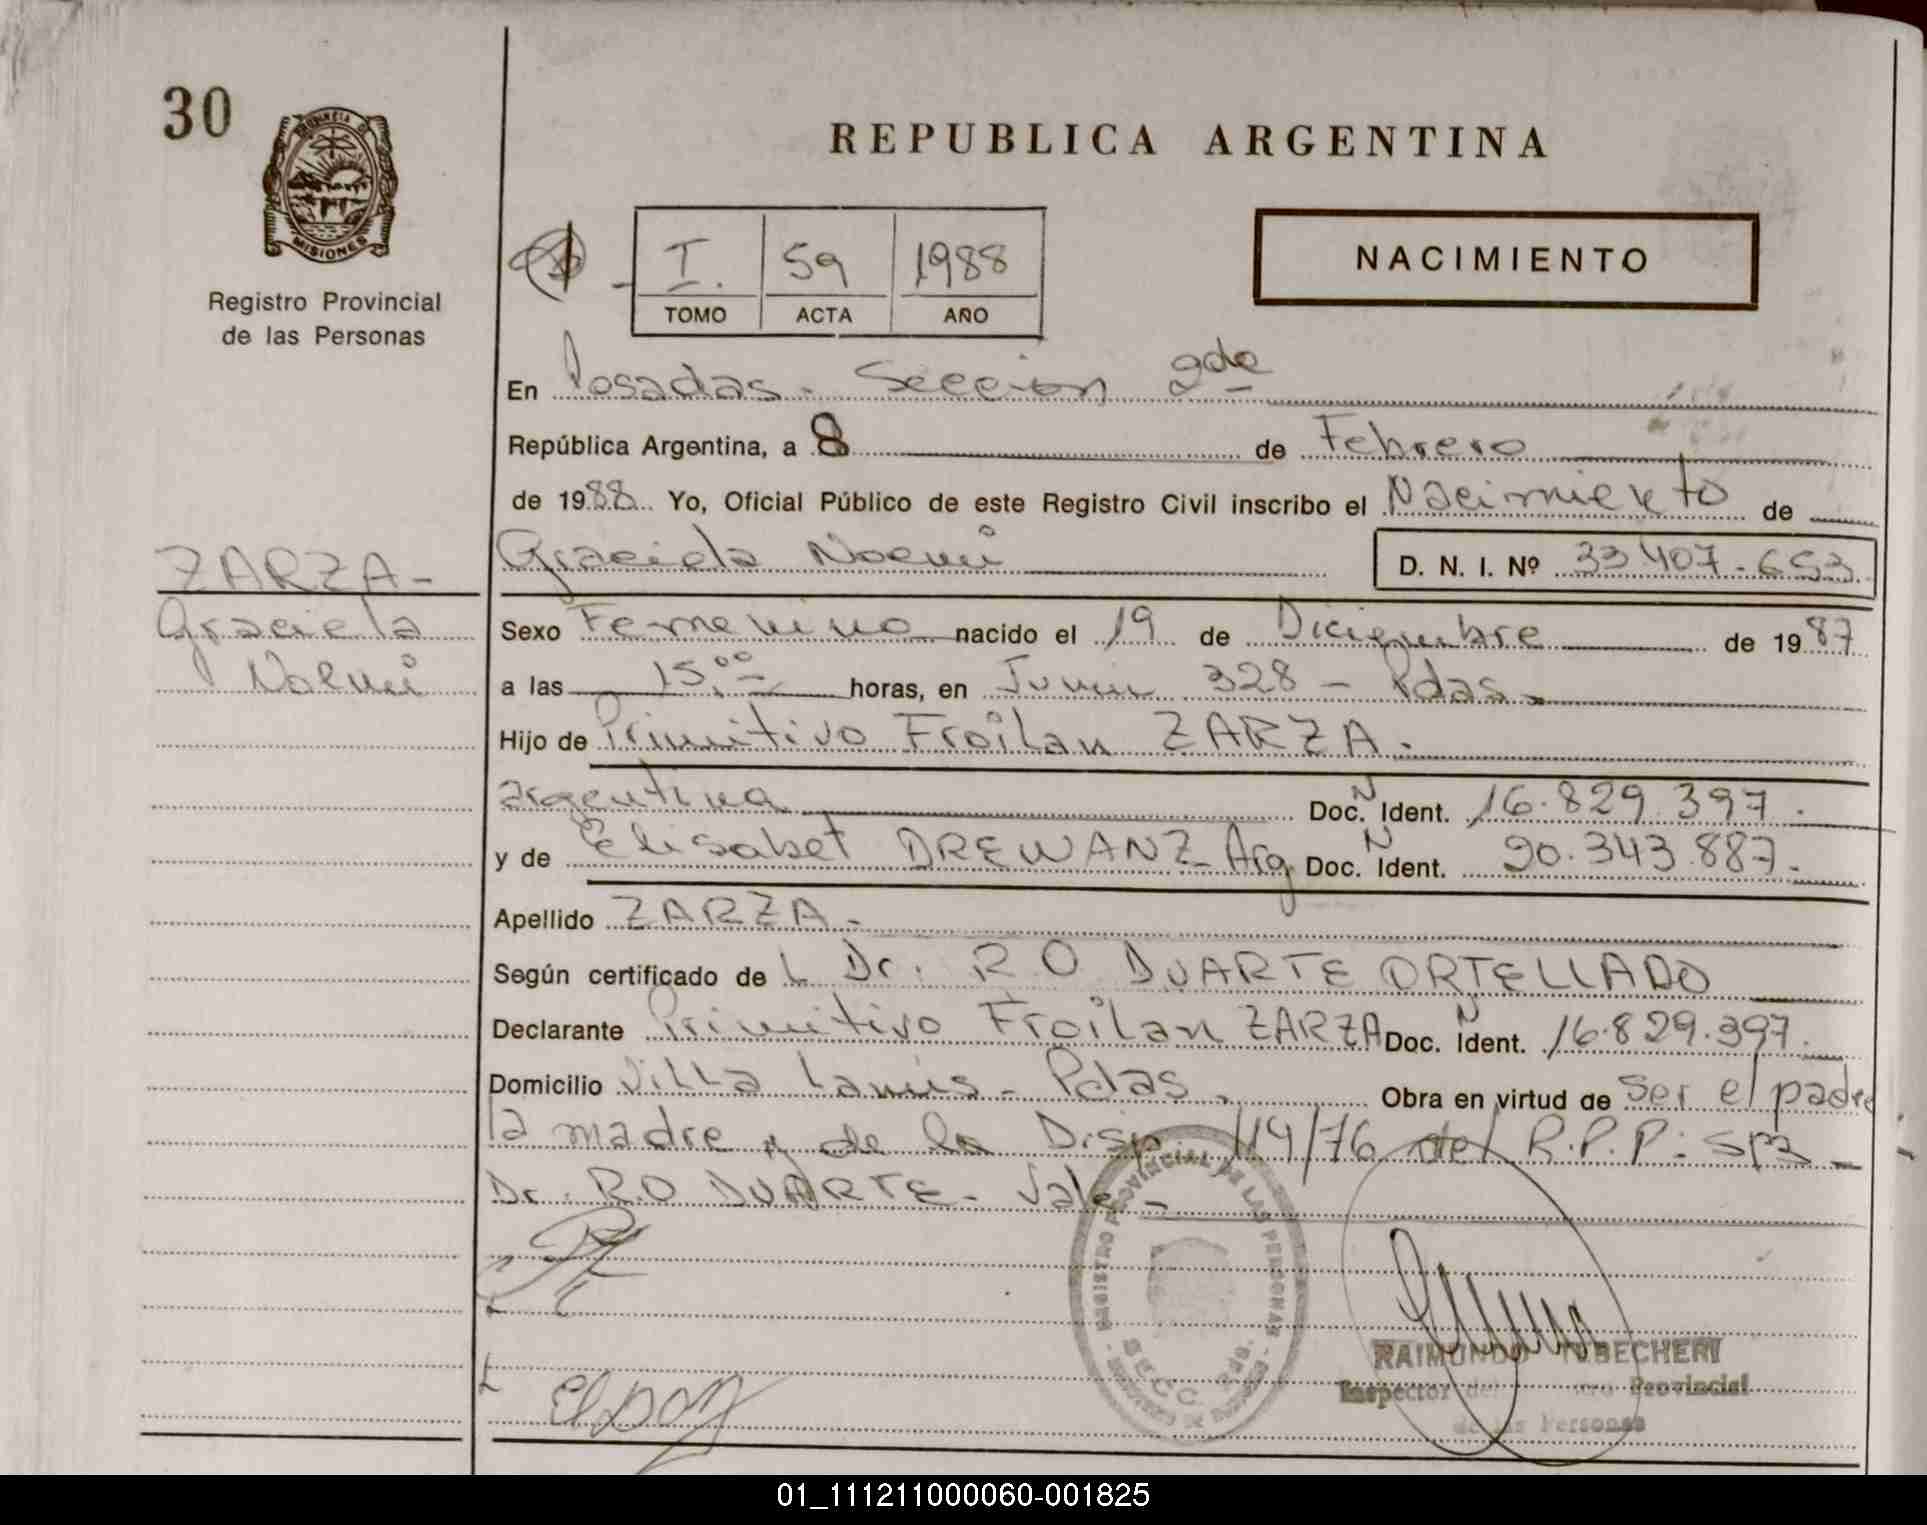 30
PROVINCIA DE
MISIONES
Registro Provincial
de las Personas
REPUBLICA ARGENTINA
I. 59 1988
TOMO ACTA AÑO
NACIMIENTO
En Posadas. Sección 2da
República Argentina, a 8 de Febrero
de 1988 Yo, Oficial Público de este Registro Civil inscribo el Nacimiento de
Graciela Noemi D. N. I. Nº 33.407.653
ZARZA-
Graciela
Noemi
Sexo Femenino nacido el 19 de Diciembre de 1987
a las 15,00 horas, en Junin 328 - Pdas.
Hijo de Primitivo Froilan ZARZA.
argentina Doc. N Ident. 16.829.397.
y de Elisabet DREWANZ Arg Doc. N Ident. 90.343.887.
Apellido ZARZA.
Según certificado de L Dr. R O DUARTE ORTELLADO
Declarante Primitivo Froilan ZARZA Doc. N Ident. 16.829.397.
Domicilio Villa Lanús - Pdas. Obra en virtud de ser el padre
la madre y de la Disp. 114/76 del R.P.P: SR
Dr. R.O DUARTE. Vale.
REGISTRO PROVINCIAL DE LAS PERSONAS
SECC. 2da.
RAIMUNDO BECHERI
Inspector del Provincial
de las Personas
01_111211000060-001825